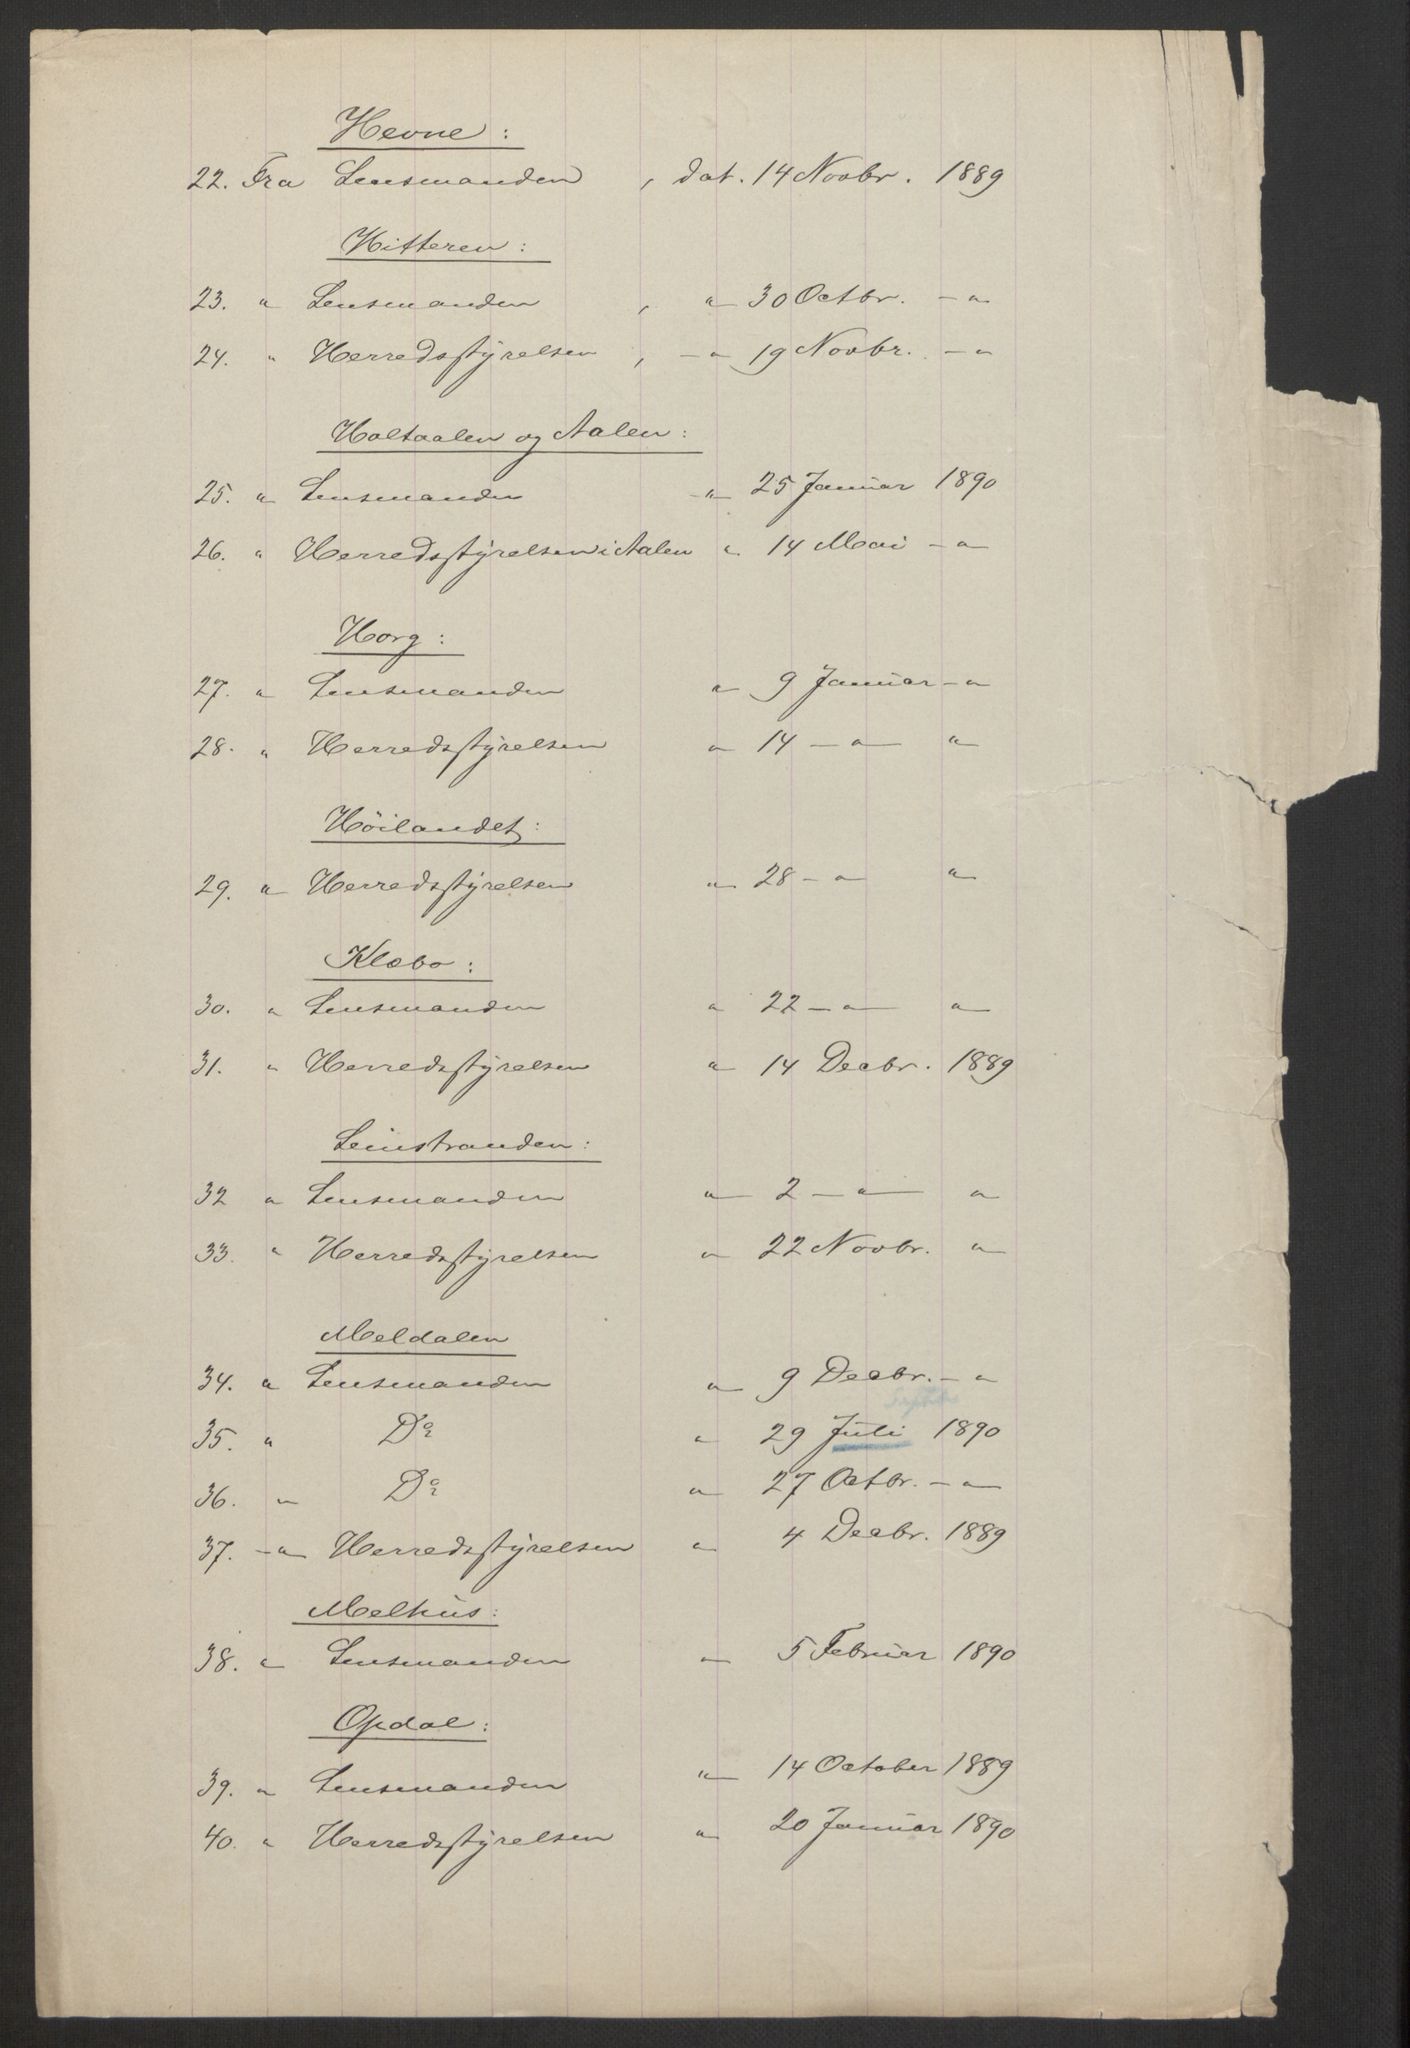 Hevne:
22. Fra Lensmanden , dat. 14 Novbr. 1889
Hitteren:
23. " Lensmanden , " 30 Octbr. - " -
24. " Herredsstyrelsen , - " 19 Novbr. - " -
Holtaalen og Aalen:
25. " Lensmanden - " - 25 Januar 1890
26. " Herredsstyrelsen i Aalen " 14 Mai - " -
Horg:
27. " Lensmanden " 9 Januar - " -
28. " Herredsstyrelsen " 14 - " - "
Höilandet:
29. " Herredsstyrelsen " 28 - " - "
Klæbo:
30. " Lensmanden " 22 - " - "
31. " Herredsstyrelsen " 14 Decbr. 1889
Leinstranden:
32 " Lensmanden " 2 - " - "
33. " Herredsstyrelsen " 22 Novbr. "
Meldalen
34. " Lensmanden " 9 Decbr. - " -
35. " Do " 29 Juli 1890
36. " Do " 27 Octbr. - " -
37. - " - Herredsstyrelsen " 4 Decbr. 1889
Melhus:
38. " Lensmanden " 5 Februar 1890
Opdal:
39. " Lensmanden " 14 October 1889
40. " Herredsstyrelsen " 20 Januar 1890